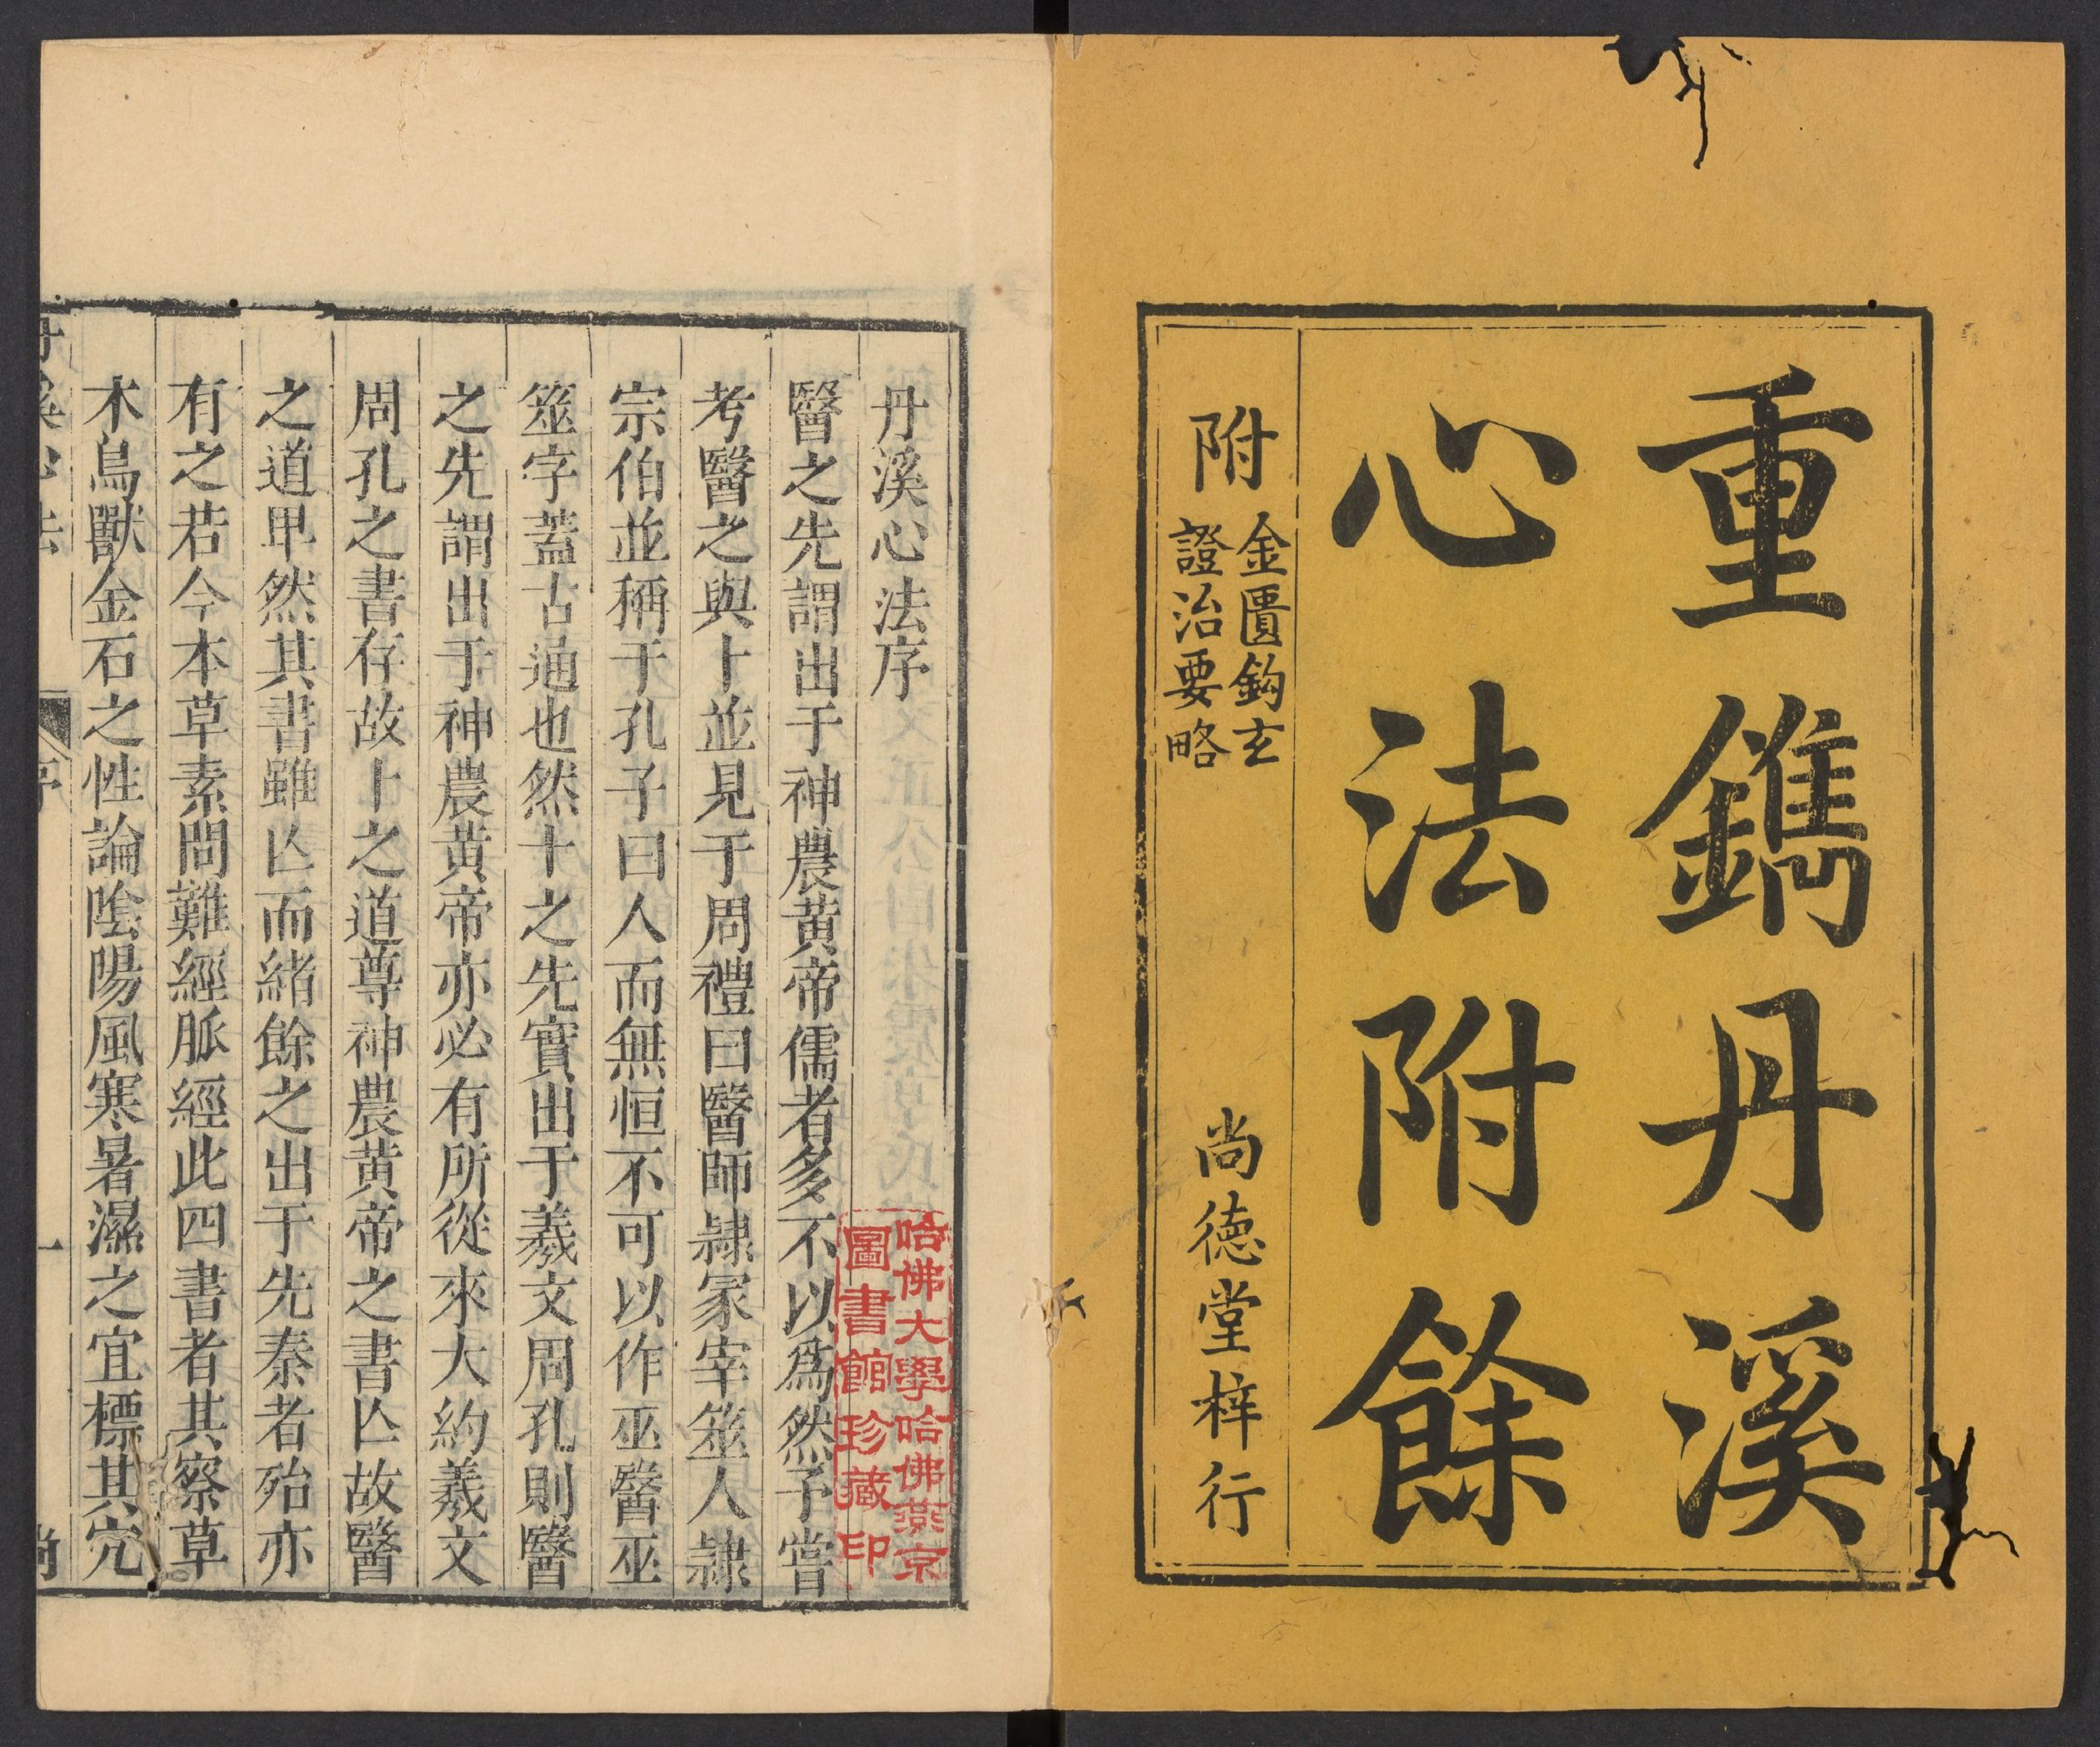 重鐫丹溪
心法附餘
附
金匱鈎玄
證治要略
尚德堂梓行
丹溪心法序
醫之先謂出于神農黃帝儒者多不以爲然予嘗
考醫之與卜並見于周禮曰醫師隷冢宰筮人隷
宗伯並稱于孔子曰人而無恒不可以作巫醫巫
筮字蓋古通也然卜之先實出于羲文周孔則醫
之先謂出于神農黃帝亦必有所從來大約羲文
周孔之書存故卜之道尊神農黃帝之書亾故醫
之道卑然其書雖亾而緒餘之出于先秦者殆亦
有之若今本草素問難經脈經此四書者其察草
木鳥獸金石之性論陰陽風寒暑濕之宜標其穴
丹溪心法
序
一
尚
哈佛大學哈佛燕京
圖書館珍藏印